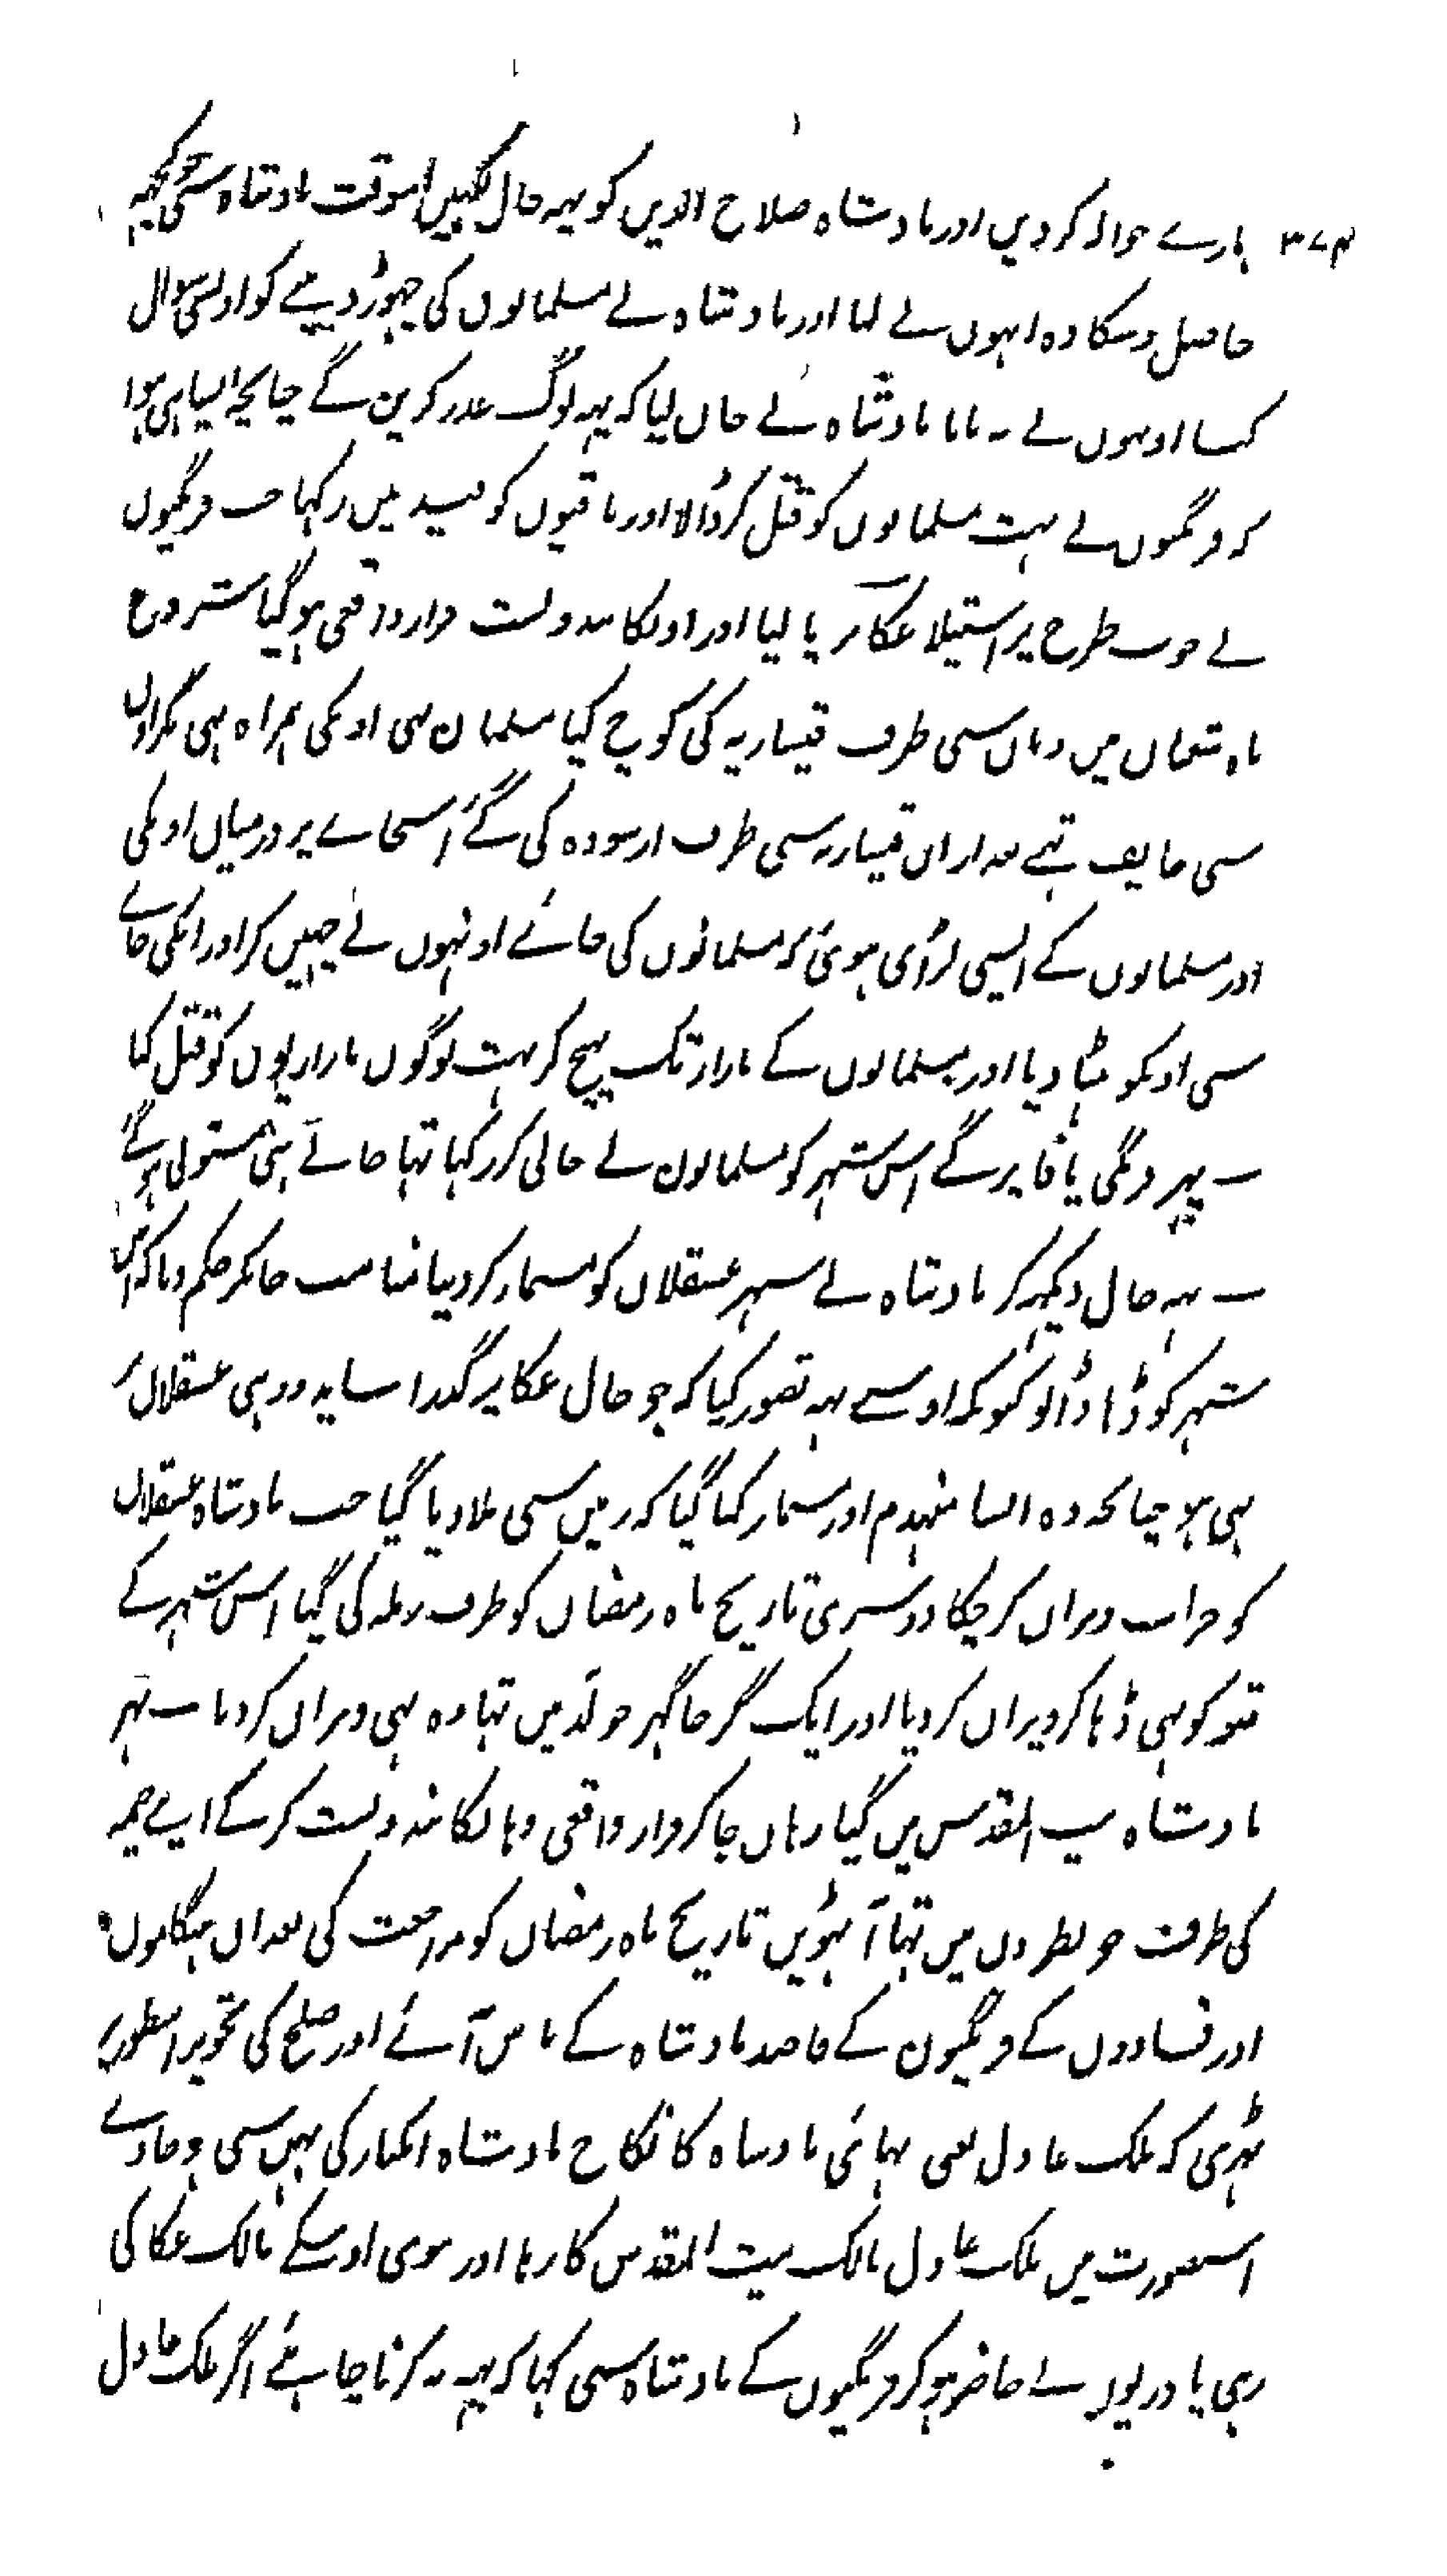 ۳۷۴ ہمارے حوالہ کر دیں اور بادشاہ صلاح الدین کو یہہ حال لکہیں اسوقت بادشاہ سی جو کچہہ
حاصل ہو سکا وہ انہوں نے لیا اور بادشاہ نے مسلمانوں کی چہوڑ دینے کو اونسی سوال
کیا اونہوں نے نہ مانا بادشاہ نے جان لیا کہ یہہ لوگ غدر کرین گے چنانچہ ایسا ہی ہوا
کہ فرنگیوں نے بہت مسلمانوں کو قتل کر ڈالا اور باقیوں کو قید میں رکہا جب فرنگیوں
نے خوب طرح پر استیلا عکا پر پا لیا اور اونکا بندوبست قرار واقعی ہو گیا شروع
ماہ شعبان میں وہاں سی طرف قیساریہ کی کوچ کیا مسلمان بہی اونکی ہمراہ ہی مگر اون
سی خایف تہے بعد ازاں قیساریہ سی طرف ارسوف کی گئے اسجاے پر درمیان اونکی
اور مسلمانوں کے ایسی لڑائی ہوئی کہ مسلمانوں کی جائے اونہوں نے چہین کر اور انکی جاے
سی اونکو ہٹا دیا اور مسلمانوں کے بازار تک پہنچ کر بہت لوگوں بازاریوں کو قتل کیا
پہر فرنگی یافا پر گے اس شہر کو مسلمانون نے خالی کر رکہا تہا جاتے ہی مستولی ہوگے
یہہ حال دیکہہ کر بادشاہ نے شہر عسقلان کو مسمار کر دینا مناسب جانکر حکم دیا کہ اس
شہر کو ڈہا ڈالو کیونکہ اوسنے یہہ تصور کیا کہ جو حال عکا پر گذرا شاید وہ ہی عسقلان پر
بہی ہو چنانچہ وہ ایسا منہدم اور مسمار کیا گیا کہ زمین سی ملا دیا گیا جب بادشاہ عسقلان
کو خراب ویران کر چکا دوسری تاریخ ماہ رمضان کو طرف رملہ کی گیا اس شہر کے
قلعہ کو بہی ڈہا کر ویران کر دیا اور ایک گرجا گہر جو لد میں تہا وہ بہی ویران کر دیا پہر
بادشاہ بیت المقدس میں گیا وہاں جا کر قرار واقعی وہانکا بندوبست کر کے اپنے خیمہ
کی طرف جو نطرون میں تہا آٹہویں تاریخ ماہ رمضان کو مراجعت کی بعد ان ہنگاموں
اور فسادوں کے فرنگیون کے قاصد بادشاہ کے پاس آئے اور صلح کی تجویز اسطور پر
ٹہری کہ ملک عادل یعنی بہائی بادشاہ کا نکاح بادشاہ انکتار کی بہین سی ہو جاوے
اسصورت میں ملک عادل مالک بیت المقدس کا رہا اور بیوی اوسکے مالک عکا کی
رہی پادریوں نے حاضر ہو کر فرنگیوں کے بادشاہ سی کہا کہ یہہ نہ کرنا چاہئے اگر ملک عادل